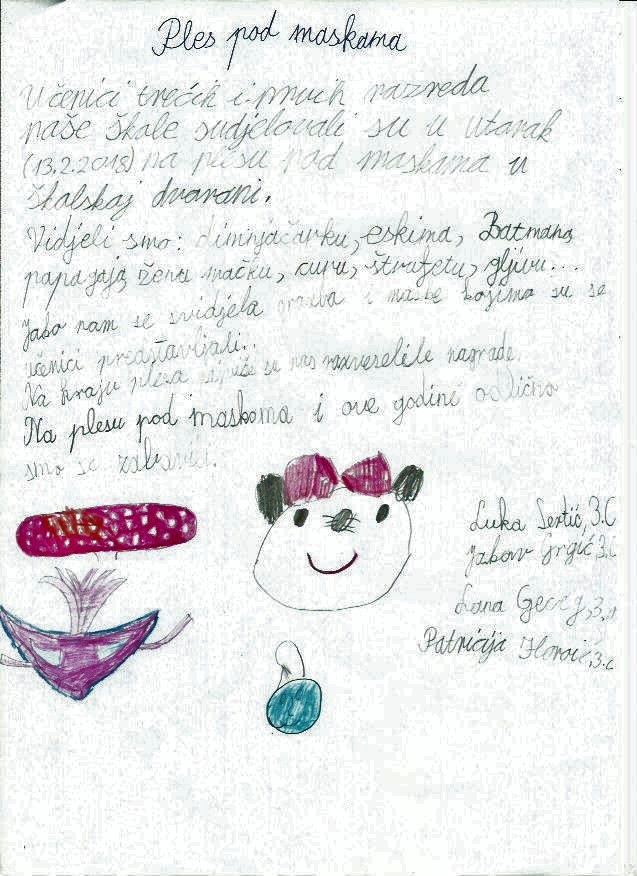 Ples pod maskama
Učenici trećih i prvih razreda
naše škole sudjelovali su u utorak
(13.2.2018) na plesu pod maskama u
školskoj dvorani.
Vidjeli smo: dimnjačarku, eskima, Batmana,
papagaja, ženu mačku, curu, štrufetu, gljivu...
Jako nam se svidjela glazba i maske kojima su se
učenici predstavljali..
Na kraju plesa najviše su nas razveselile nagrade.
Na plesu pod maskama i ove godine odlično
smo se zabavili.
Luka Sertić, 3.c
Jakov Grgić 3.c
Lana 3.c
Patricija 3.c